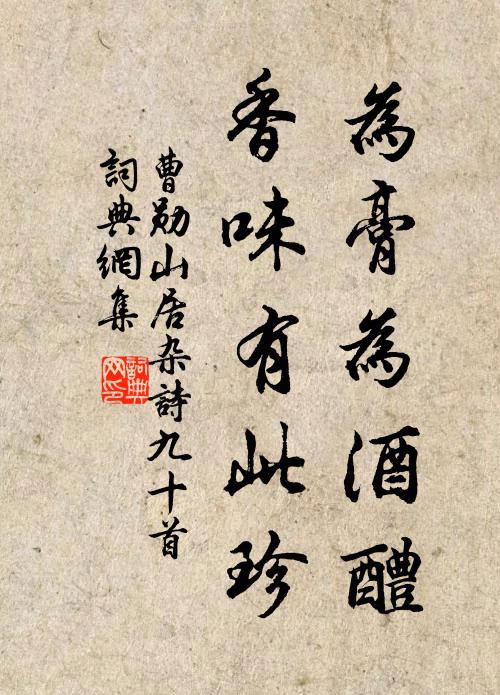 為膏為酒醴
香味有此珍
曹勛山居杂詩九十首
詞典網集
詞典网印